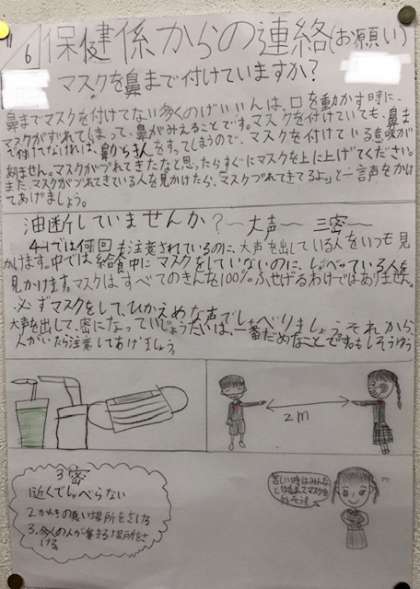 1/6 保健係からの連絡(お願い)
マスクを鼻まで付けていますか?
鼻までマスクを付けてない多くのげいいんは、口を動かす時に、
マスクがずれてしまって、鼻がみえることです。マスクを付けていても、鼻ま
で付けてなければ、鼻からきんをすってしまうので、マスクを付けている意味が
ありません。マスクがづれてきたなと思ったらすぐにマスクを上に上げてください。
また、マスクがづれてきている人を見かけたら、「マスクづれてきてるよ」と一言声をかけ
てあげましょう。
油断していませんか?〜大声〜 三密〜
4-1では何回も注意されているのに、大声を出している人をいつも見
かけます。中では給食中にマスクをしていないのに、しゃべっている人を
見かけます。マスクはすべてのきんを100%ふせげるわけではありません。
必ずマスクをして、ひかえめな声でしゃべりましょう。それから、
大声を出して、密になっているじょうたいは、一番だめなことです。もしそうゆう
人がいたら注意してあげましょう。
2m
3密
1.近くでしゃべらない
2.かんきの悪い場所をさける
3.多くの人が集まる場所をさ
ける
苦しい時はみんな
マスクを